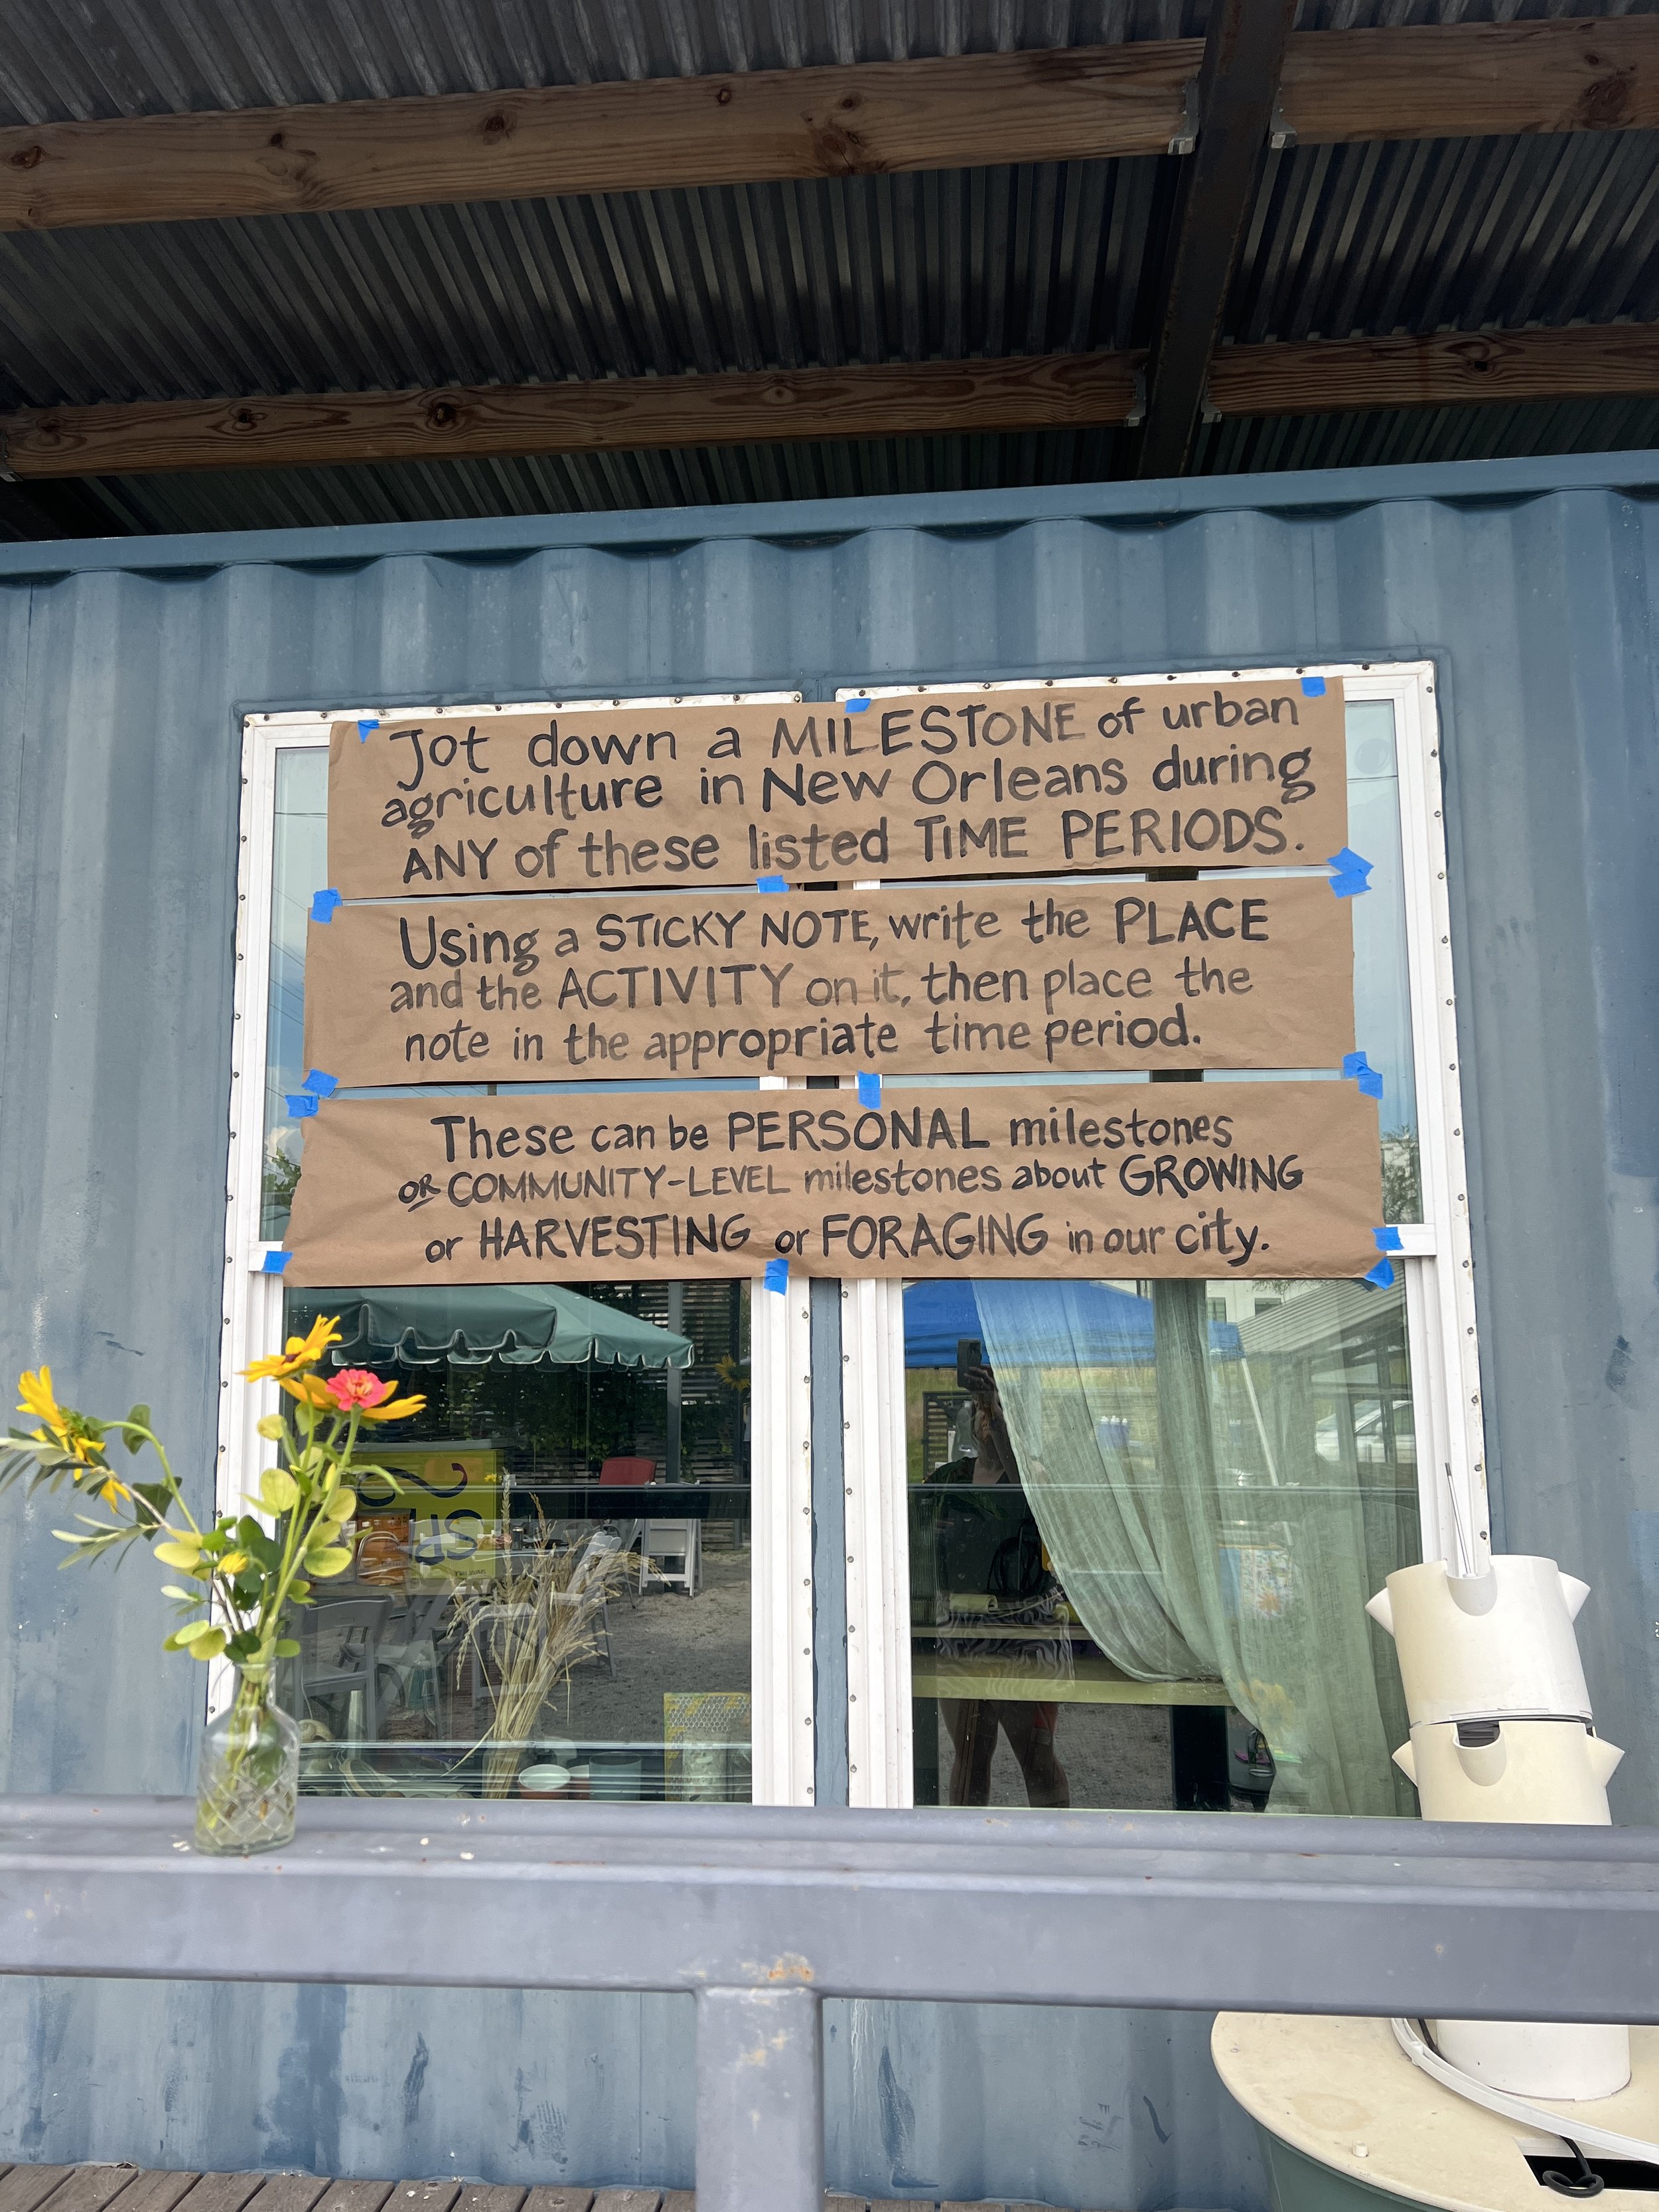 Jot down a MILESTONE of urban
agriculture in New Orleans during
ANY of these listed TIME PERIODS.
Using a STICKY NOTE, write the PLACE
and the ACTIVITY on it, then place the
note in the appropriate time period.
These can be PERSONAL milestones
OR COMMUNITY-LEVEL milestones about GROWING
or HARVESTING or FORAGING in our city.